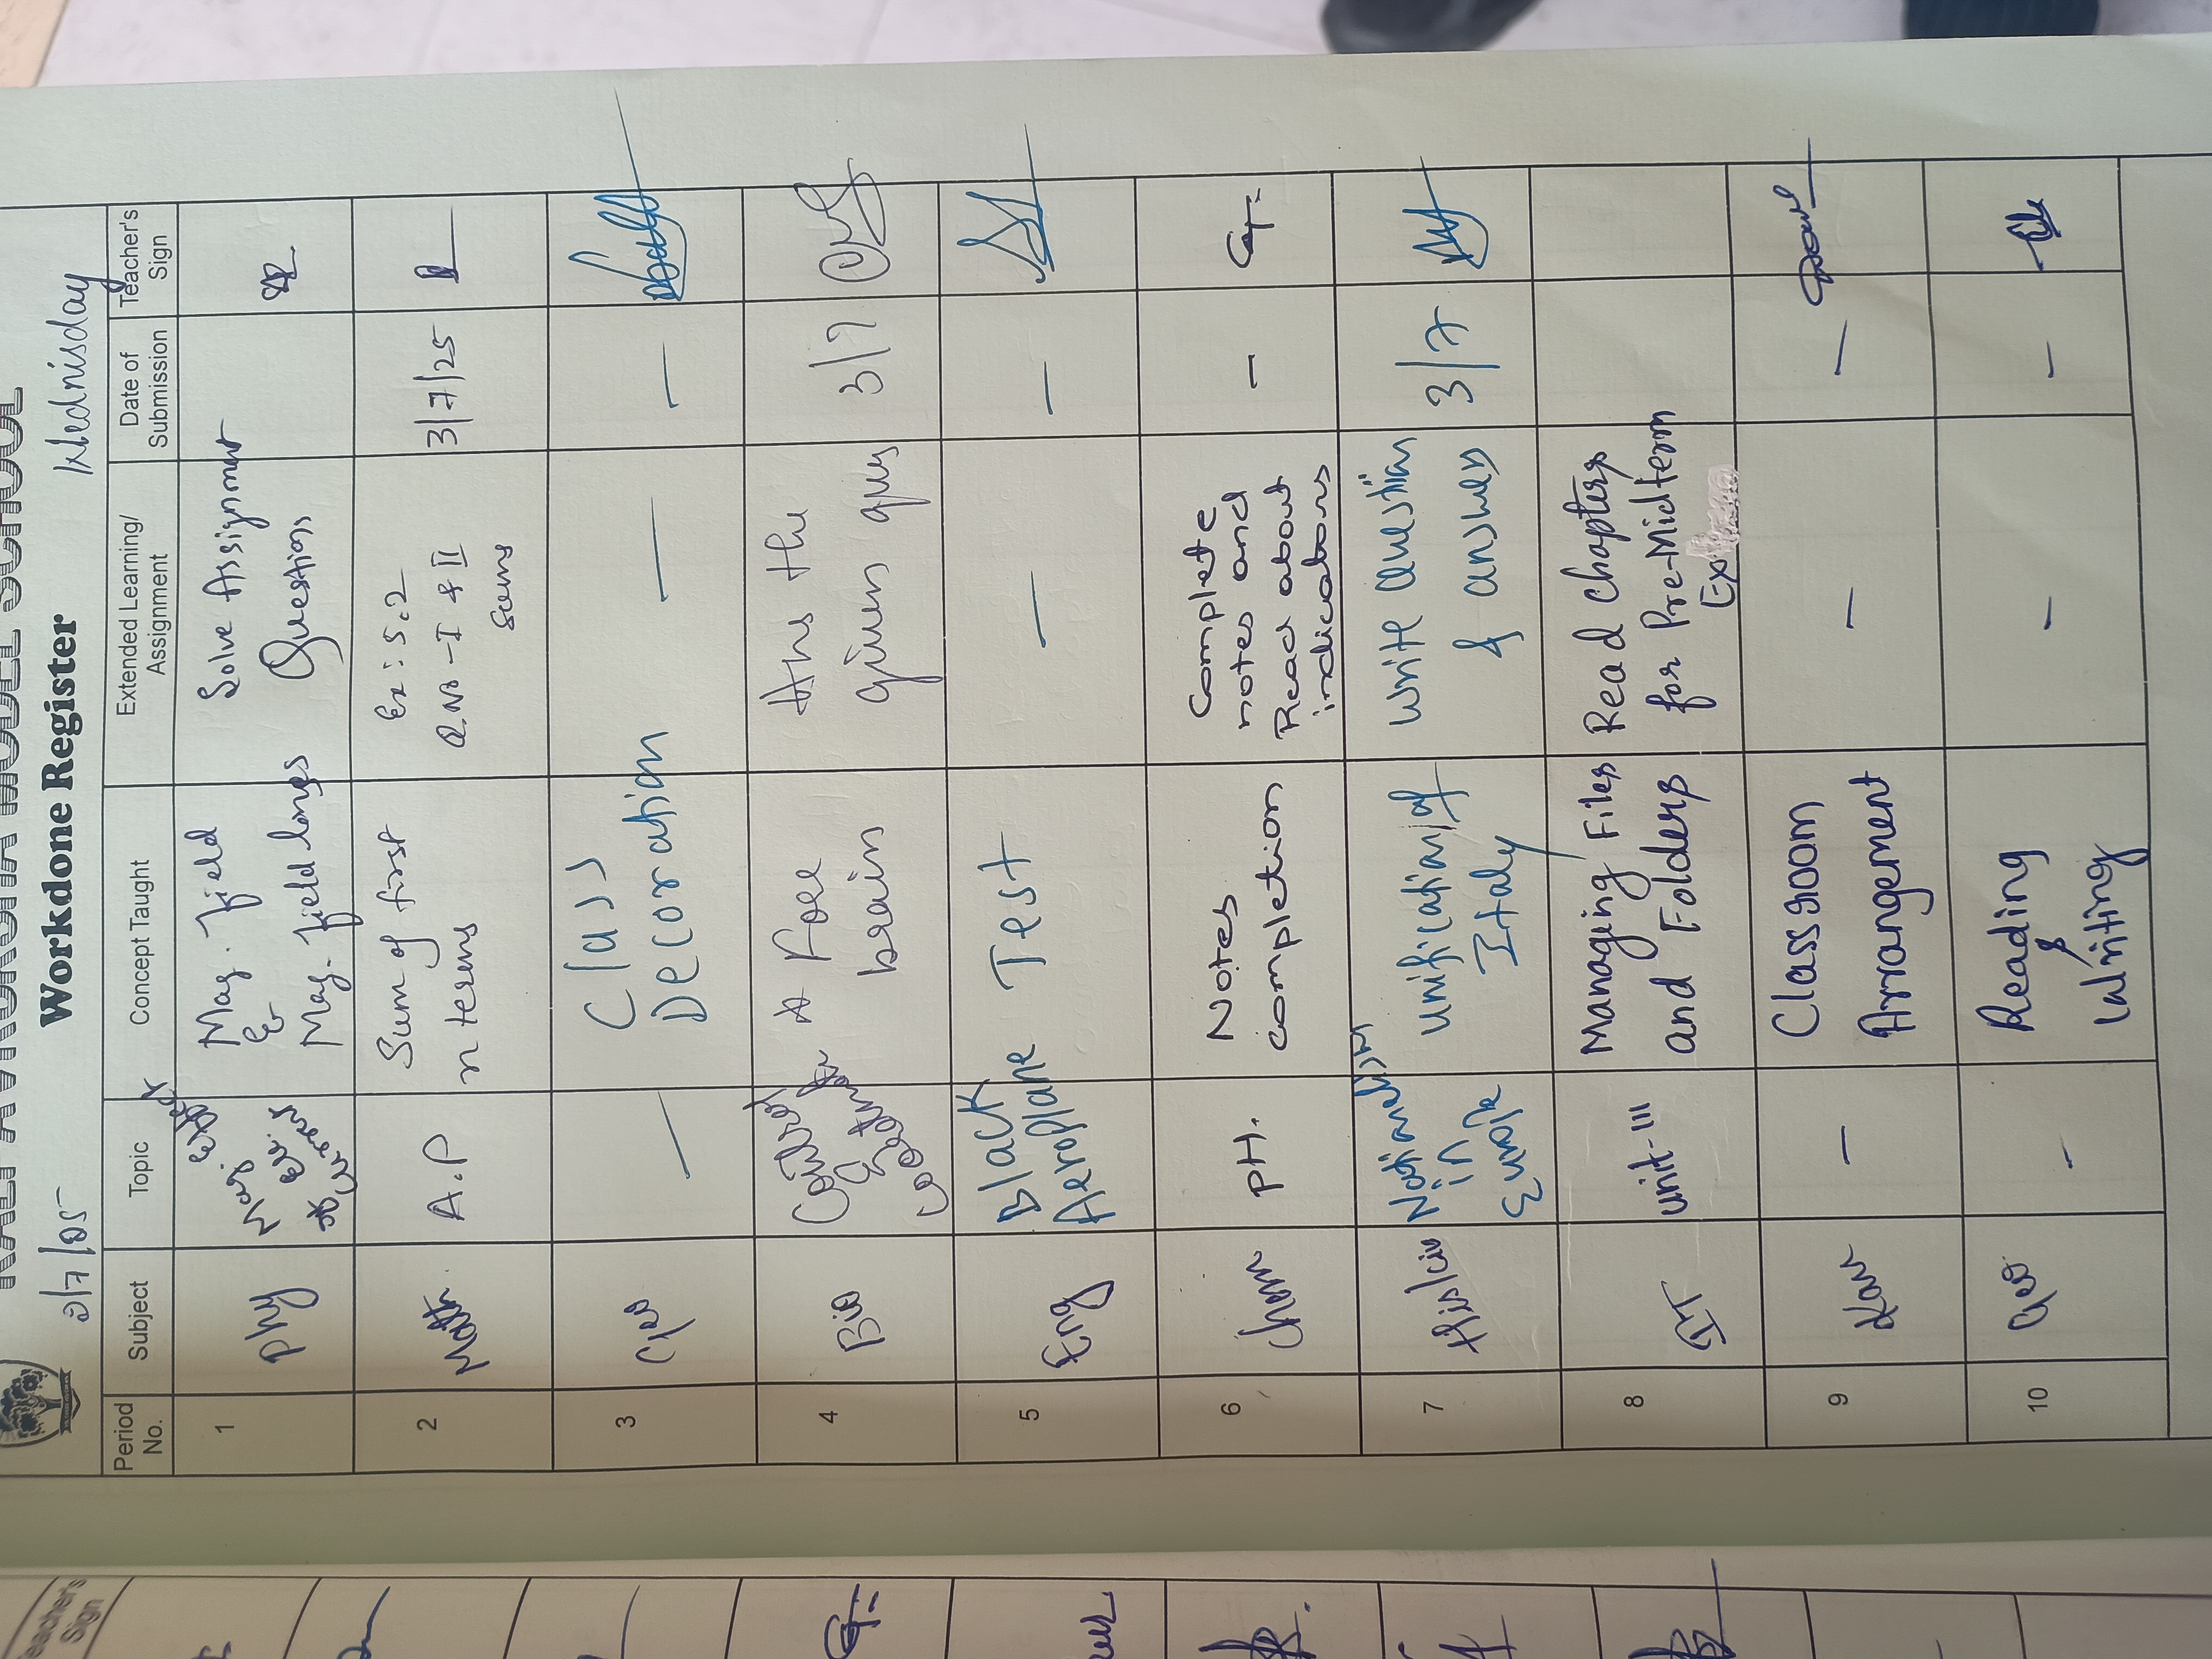 Workdone Register
2/7/25 Wednisday
Period No. Subject Topic Concept Taught Extended Learning/ Assignment Date of Submission Teacher's Sign
1 Phy Mag. Field
&
Mag. field lines
Solve Assignment
Questions
2 Math A.P Sum of first
n terms
Ex: 5.2
Q.No - I & II
sums
3/7/25
3 — Class
Decoration
—
—
4 Bio Control & Fore
brain
Ans the
given ques
3/7
5 Eng Black
Aeroplane
Test
—
—
6 chem pH. Notes
completion
Complete
notes and
Read about
indicators
–
7 His/civ Nationalism
in
Europe
unification of
Italy
write Question
& answer
3/7
8 IT Unit-III Managing Files
and Folders
Read Chapters
for Pre-Midterm
9 Kan – Classroom
Arrangement
–
–
10 – Reading
&
Writing
–
–
Teacher's
Sign